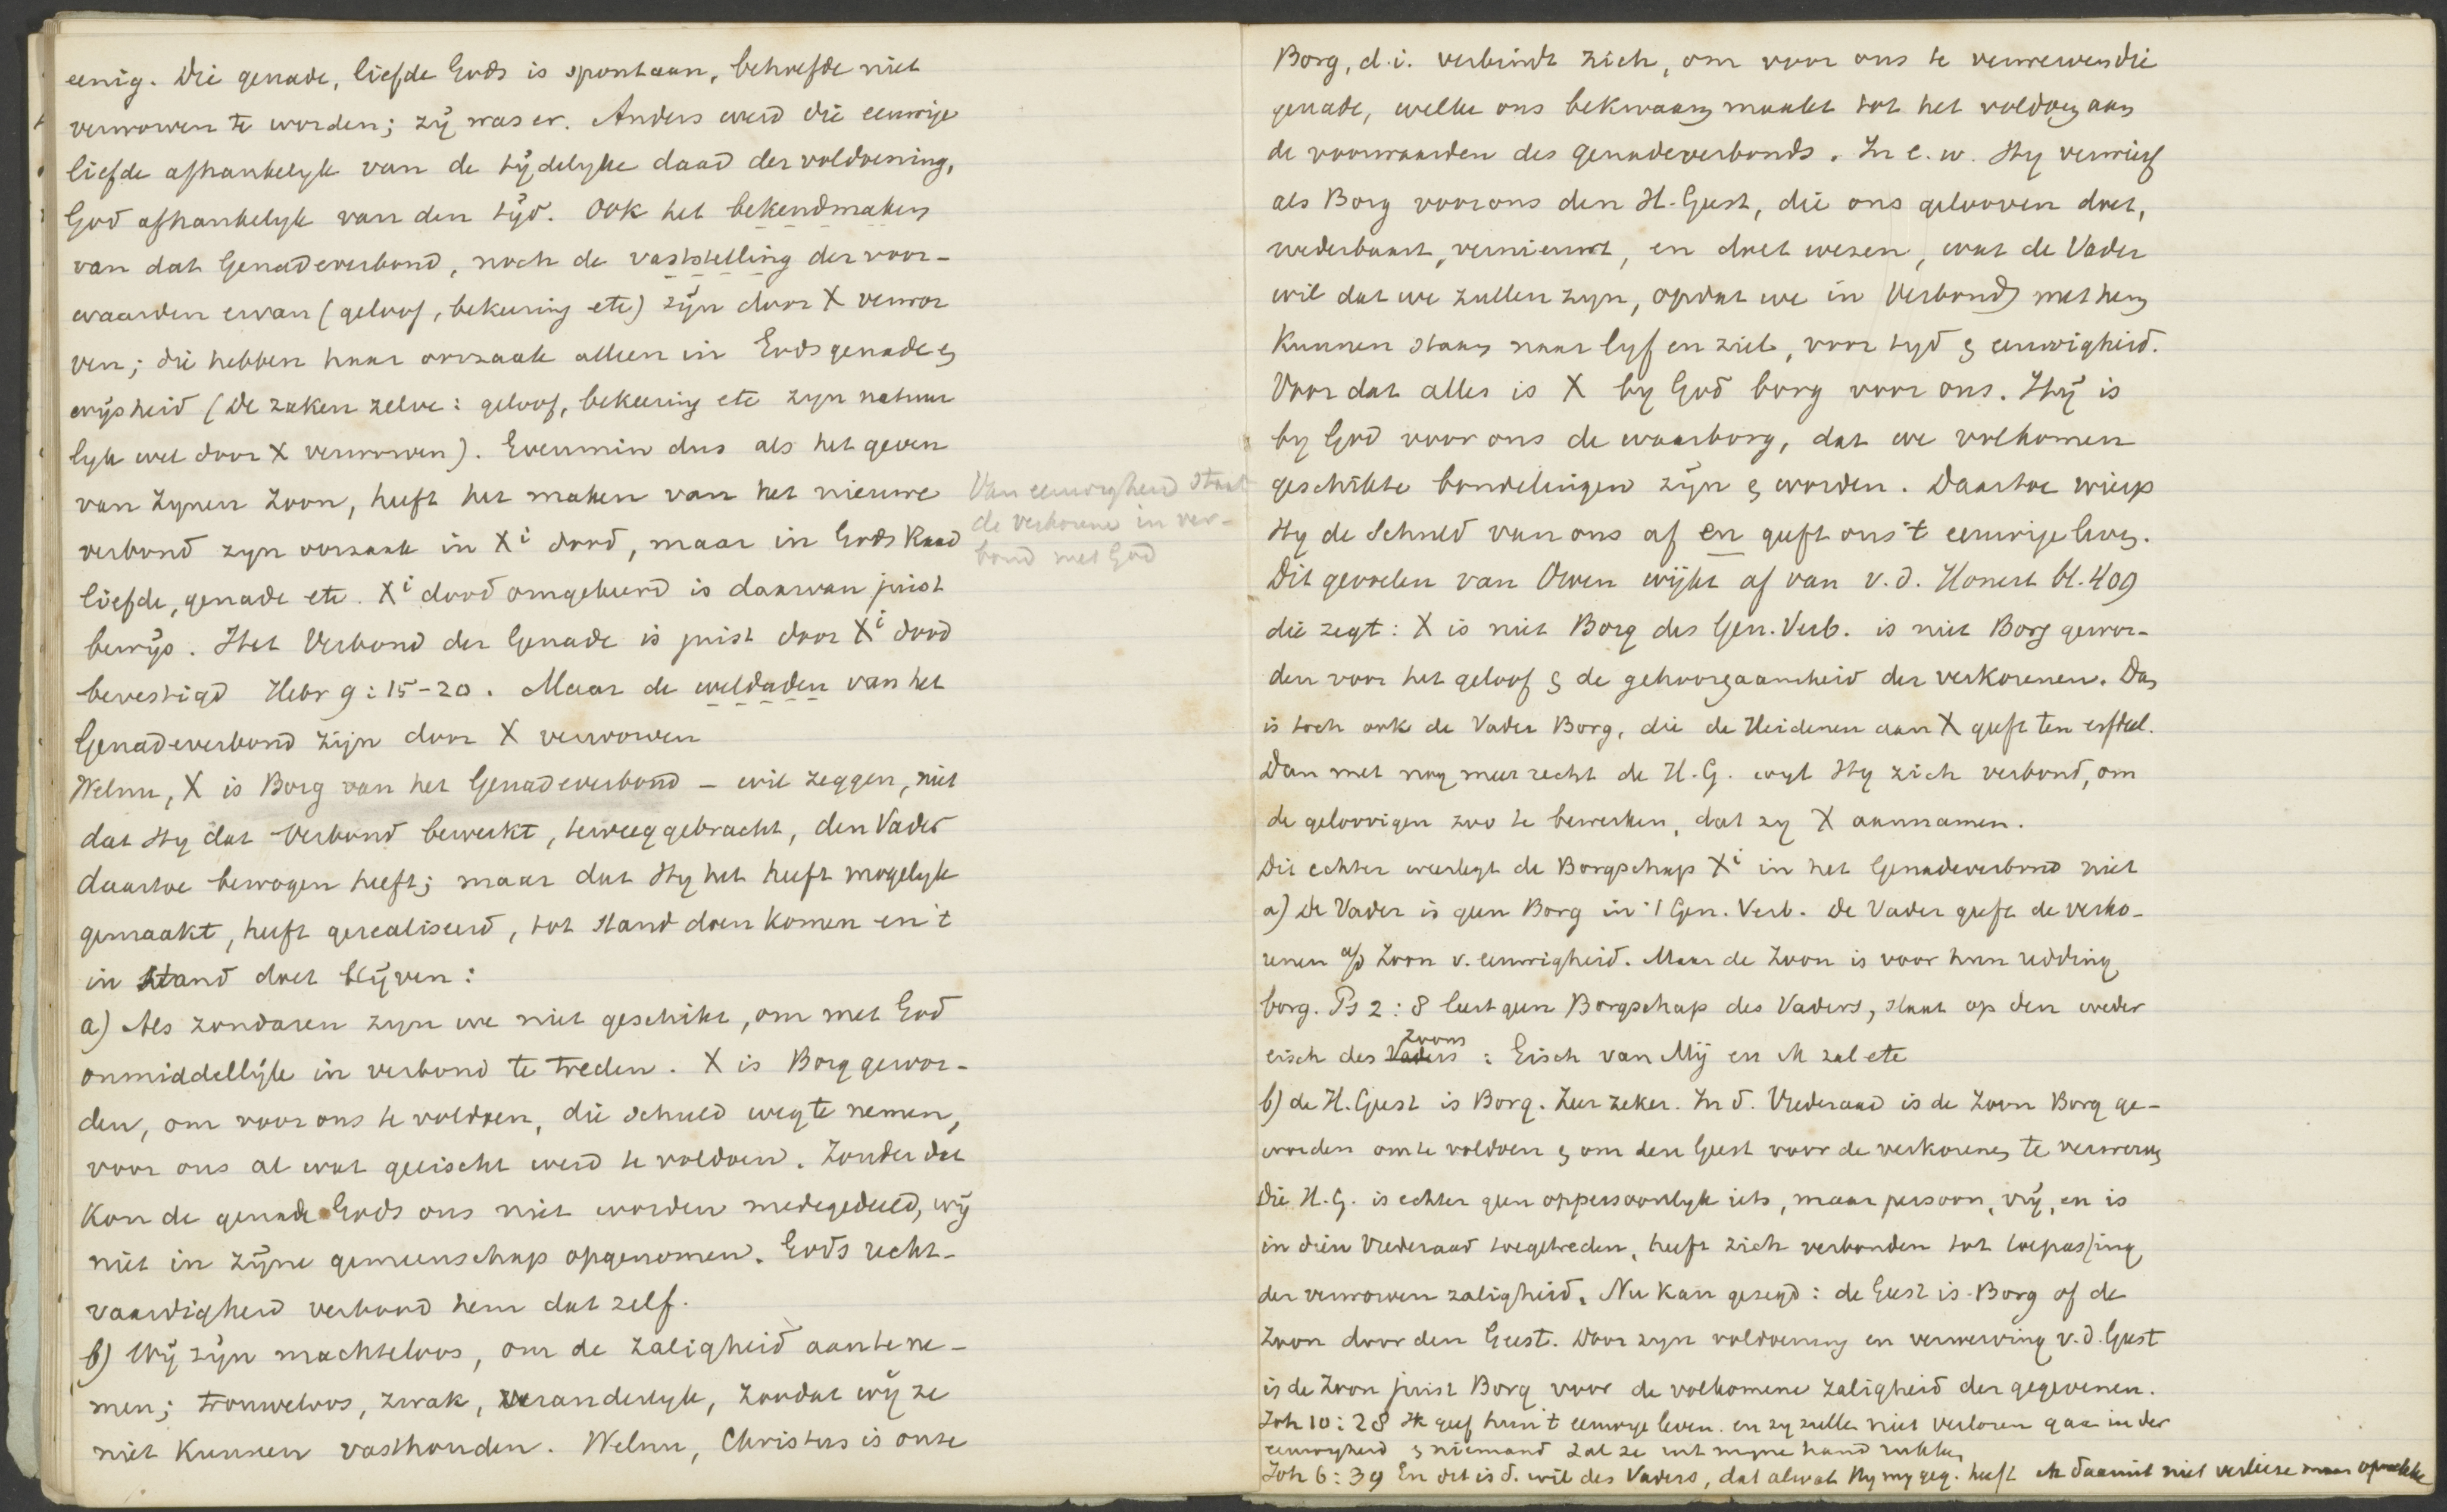 eenig. Die genade, liefde Gods is spontaan, behoefde niet
verworven te worden; zij was er. Anders werd die eeuwige
liefde afhankelyk van de tijdelyke daad der voldoening,
God afhankelyk van den tijd. Ook het bekendmaken
van dat Genadeverbond, noch de vaststelling der voor-
waarden ervan (geloof, bekeering etc) zijn door X verwor
ven; die hebben haar oorzaak alleen in Gods genade &
wijsheid (De zaken zelve: geloof, bekeering etc zyn natuur
lyk wel door X verworven). Evenmin dus als het geven
van Zynen Zoon, heeft het maken van het nieuwe
verbond zyn oorzaak in Xi dood, maar in Gods Raad
liefde, genade etc. Xi dood omgekeerd is daarvan juist
bewijs. Het Verbond der Genade is juist door Xi dood
bevestigd Hebr 9:15-20. Maar de weldaden van het
Genadeverbond zijn door X verworven
Welnu, X is Borg van het Genadeverbond – wil zeggen, niet
dat Hy dat Verbond bewerkt, teweeggebracht, den Vader
daartoe bewogen heeft; maar dat Hy het heeft mogelyk
gemaakt, heeft gerealiseerd, tot stand doen komen en 't
in stand doet blijven:
a) Als zondaren zyn we niet geschikt, om met God
onmiddellijk in verbond te treden. X is Borg gewor-
den, om voor ons te voldoen, die schuld weg te nemen,
voor ons al wat geëischt werd te voldoen. Zonder dat
kon de genade Gods ons niet worden medegedeeld, wij
niet in zijne gemeenschap opgenomen. Gods recht-
vaardigheid verbond hem dat zelf.
b) Wij zijn machteloos, om de zaligheid aan te ne-
men; trouweloos, zwak, veranderlyk, zoodat wij ze
niet kunnen vasthouden. Welnu, Christus is onze
Van eeuwigheid staat
de verkorene in ver-
bond met God
Borg, d.i. verbindt zich, om voor ons te verwerven die
genade, welke ons bekwaam maakt tot het voldoen aan
de voorwaarden des genadeverbonds. In e.w. Hy verwierf
als Borg voor ons den H. Geest, die ons gelooven doet,
wederbaart, vernieuwt, en doet wezen, wat de Vader
wil dat we zullen zyn, opdat we in Verbond met hem
kunnen staan naar lyf en ziel, voor tyd & eeuwigheid.
Voor dat alles is X by God borg voor ons. Hij is
by God voor ons de waarborg, dat we volkomen
geschikte bondelingen zijn & worden. Daartoe wierp
Hy de schuld van ons af en geeft ons 't eeuwige leven.
Dit gevoelen van Owen wijkt af van v.d. Honert bl. 409
die zegt: X is niet Borg des Gen. Verb. is niet Borg gewor-
den voor het geloof & de gehoorzaamheid der verkorenen. Dan
is toch ook de Vader Borg, die de Heidenen aan X geeft ten erfdeel.
Dan met nog meer recht de H.G. wyl Hy zich verbond, om
de geloovigen zoo te bewerken, dat zy X aannamen.
Dit echter weerlegt de Borgschap Xi in het Genadeverbond niet
a) De Vader is geen Borg in 't Gen. Verb. De Vader geeft de verko-
renen a/d Zoon v. eeuwigheid. Maar de Zoon is voor hun redding
borg. Ps 2:8 leert geen Borgschap des Vaders, slaat op den weder
eisch des Vaders Zoons: Eisch van Mij en Ik zal etc
b) de H. Geest is Borg. Zeer zeker. In d. Vrederaad is de Zoon Borg ge-
worden om te voldoen & om den Geest voor de verkorenen te verwerven
Die H.G. is echter geen onpersoonlyk iets, maar persoon, vrij, en is
in dien Vrederaad toegetreden, heeft zich verbonden tot toepassing
der verworven zaligheid. Nu kan gezegd: de Geest is Borg of de
Zoon door den Geest. Door zyn voldoening en verwerving v.d. Geest
is de Zoon juist Borg voor de volkomene zaligheid der gegevenen.
Joh 10:28 Ik geef hun 't eeuwige leven. en zy zullen niet verloren gaan in der
eeuwigheid & niemand zal ze uit myne hand rukken
Joh 6:39 En dit is d. wil des Vaders, dat alwat Hy my geg. heeft ik daaruit niet verlieze maar opwekke